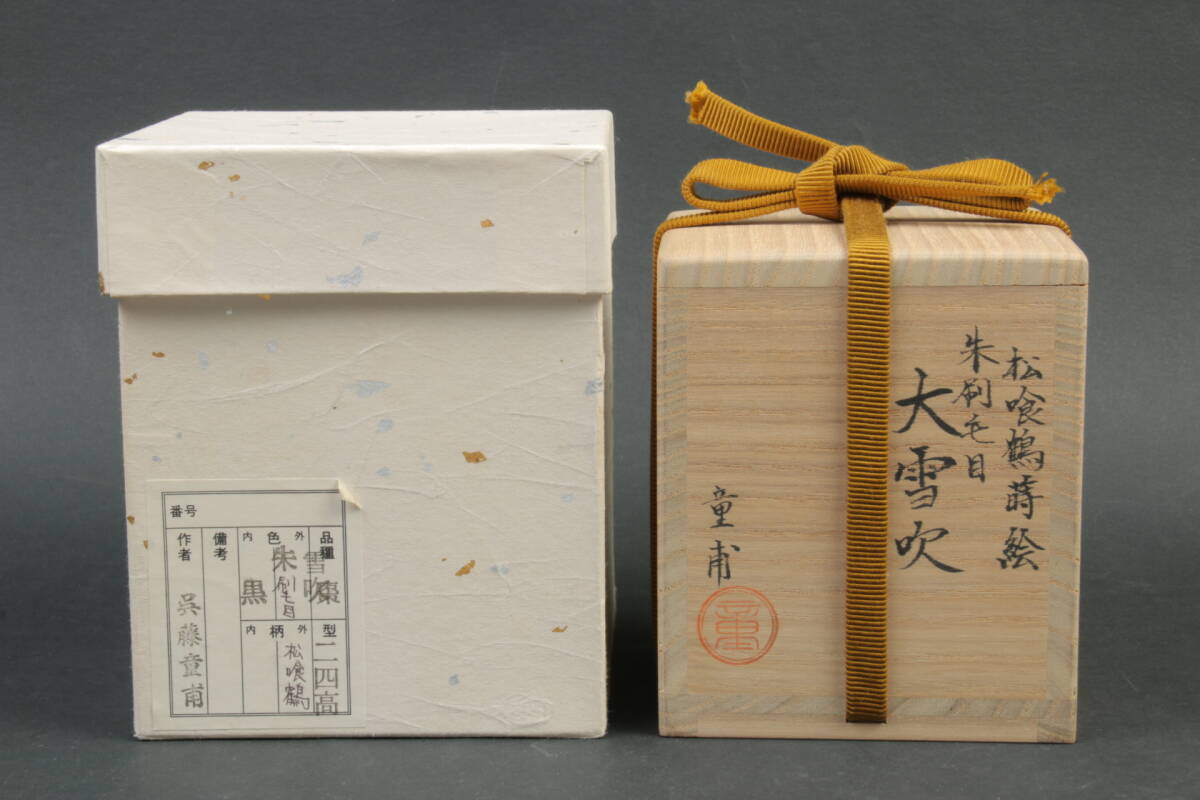 番号
品種
雪吹棗
型
二四高
外
色
内
朱刷毛目
黒
外
柄
内
松喰鶴
備考
作者
呉藤童甫
松喰鶴蒔絵
朱刷毛目
大雪吹
童甫
童